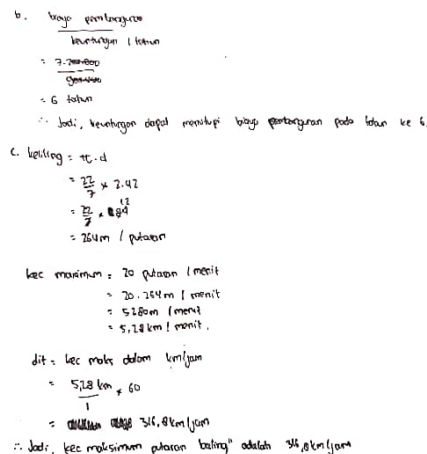 b. biaya pembangunan
keuntungan / tahun
= 7.200.000
= 6 tahun
∴ Jadi, keuntungan dapat menutupi biaya pembangunan pada tahun ke 6.
c. keliling = π.d
= 22/7 × 2.42
= 22/7 × 84 12
= 264m / putaran
kec maximum = 20 putaran / menit
= 20.264m / menit
= 5280m / menit
= 5,28 km / menit.
dit = kec maks dalam km/jam
= 5,28 km / 1 × 60
= 316,8 km/jam
∴ Jadi, kec maksimum putaran baling" adalah 316,8 km/jam